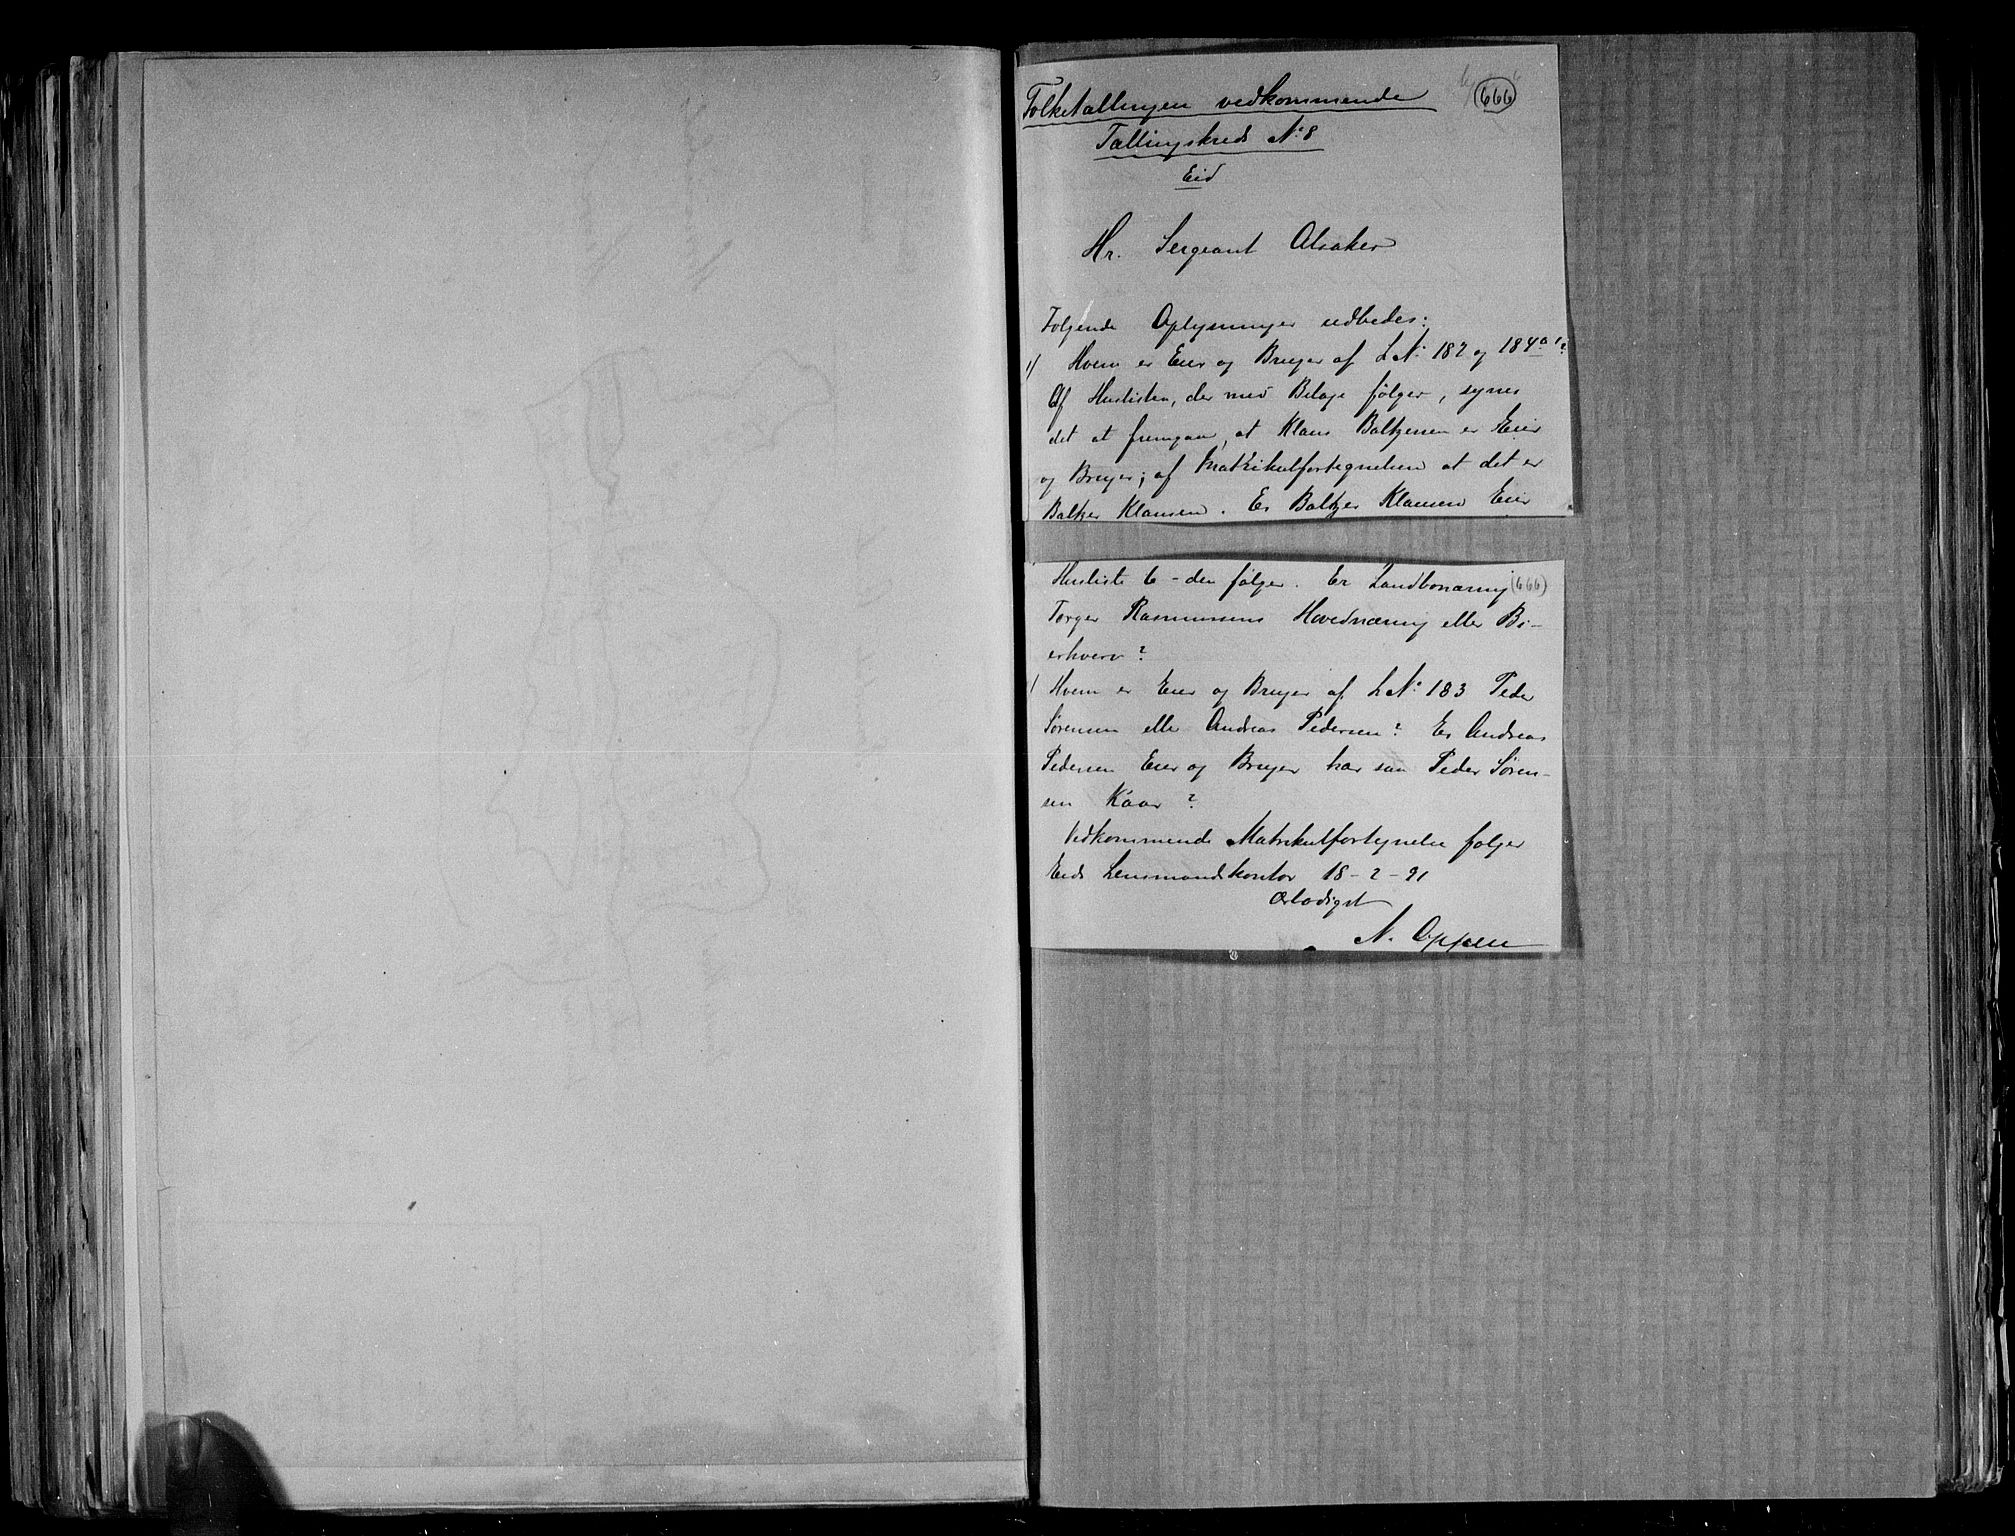 Folketællingen vedkommende
666
Tællingskreds No 8
Eid
Hr. Sergeant Alsaker
Følgende Oplysninger udbedes:
1/ Hvem er Eier og Bruger af L.No 182 og 184 a 1?
Af Huslisten, der med Bilage følger, synes
det at fremgaa, at Klaus Baltzersen er Eier
og Bruger; af Matrikulfortegnelsen at det er
Baltzer Klausen. Er Baltzer Klausen Eier
Husliste 6 - den følger. Er Landbonæring (666)
Torger Rasmussens Hovednæring eller Bi-
erhverv?
/ Hvem er Eier og Bruger af L.No 183 Peder
Sørensen eller Andreas Pedersen? Er Andreas
Pedersen Eier og Bruger har saa Peder Søren-
sen Kaar?
Vedkommende Matrikulfortegnelse følger
Eids Lensmandskontor 18-2-91
Ærbødigst
N. Opsæn